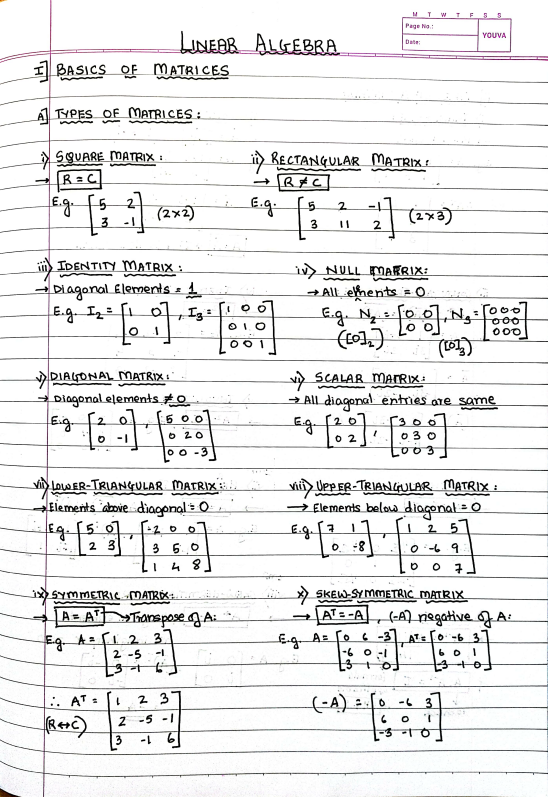 M T W T F S S
Page No.:
Date:
YOUVA
LINEAR ALGEBRA
I] BASICS OF MATRICES
A] TYPES OF MATRICES:
i) SQUARE MATRIX:
→ R = C
E.g. [5 2
3 -1] (2x2)
ii) RECTANGULAR MATRIX:
→ R ≠ C
E.g. [5 2 -1
3 11 2] (2x3)
iii) IDENTITY MATRIX:
→ Diagonal Elements = 1
E.g. I₂ = [1 0
0 1], I₃ = [1 0 0
0 1 0
0 0 1]
iv) NULL MATRIX:
→ All elements = 0
E.g. N₂ = [0 0
0 0], N₃ = [0 0 0
0 0 0
0 0 0]
([0]₂) ([0]₃)
v) DIAGONAL MATRIX:
→ Diagonal elements ≠ 0
E.g. [2 0
0 -1], [5 0 0
0 2 0
0 0 -3]
vi) SCALAR MATRIX:
→ All diagonal entries are same
E.g. [2 0
0 2], [3 0 0
0 3 0
0 0 3]
vii) LOWER-TRIANGULAR MATRIX:
→ Elements above diagonal = 0
E.g. [5 0
2 3], [-2 0 0
3 5 0
1 4 8]
viii) UPPER-TRIANGULAR MATRIX:
→ Elements below diagonal = 0
E.g. [7 1
0 -8], [1 2 5
0 -6 9
0 0 7]
ix) SYMMETRIC MATRIX:
→ A = Aᵀ → Transpose of A:
E.g. A = [1 2 3
2 -5 -1
3 -1 6]
∴ Aᵀ = [1 2 3
2 -5 -1
3 -1 6]
(R↔C)
x) SKEW-SYMMETRIC MATRIX
→ Aᵀ = -A, (-A) negative of A:
E.g. A = [0 6 -3
-6 0 -1
3 1 0], Aᵀ = [0 -6 3
6 0 1
-3 -1 0]
(-A) = [0 -6 3
6 0 1
-3 -1 0]